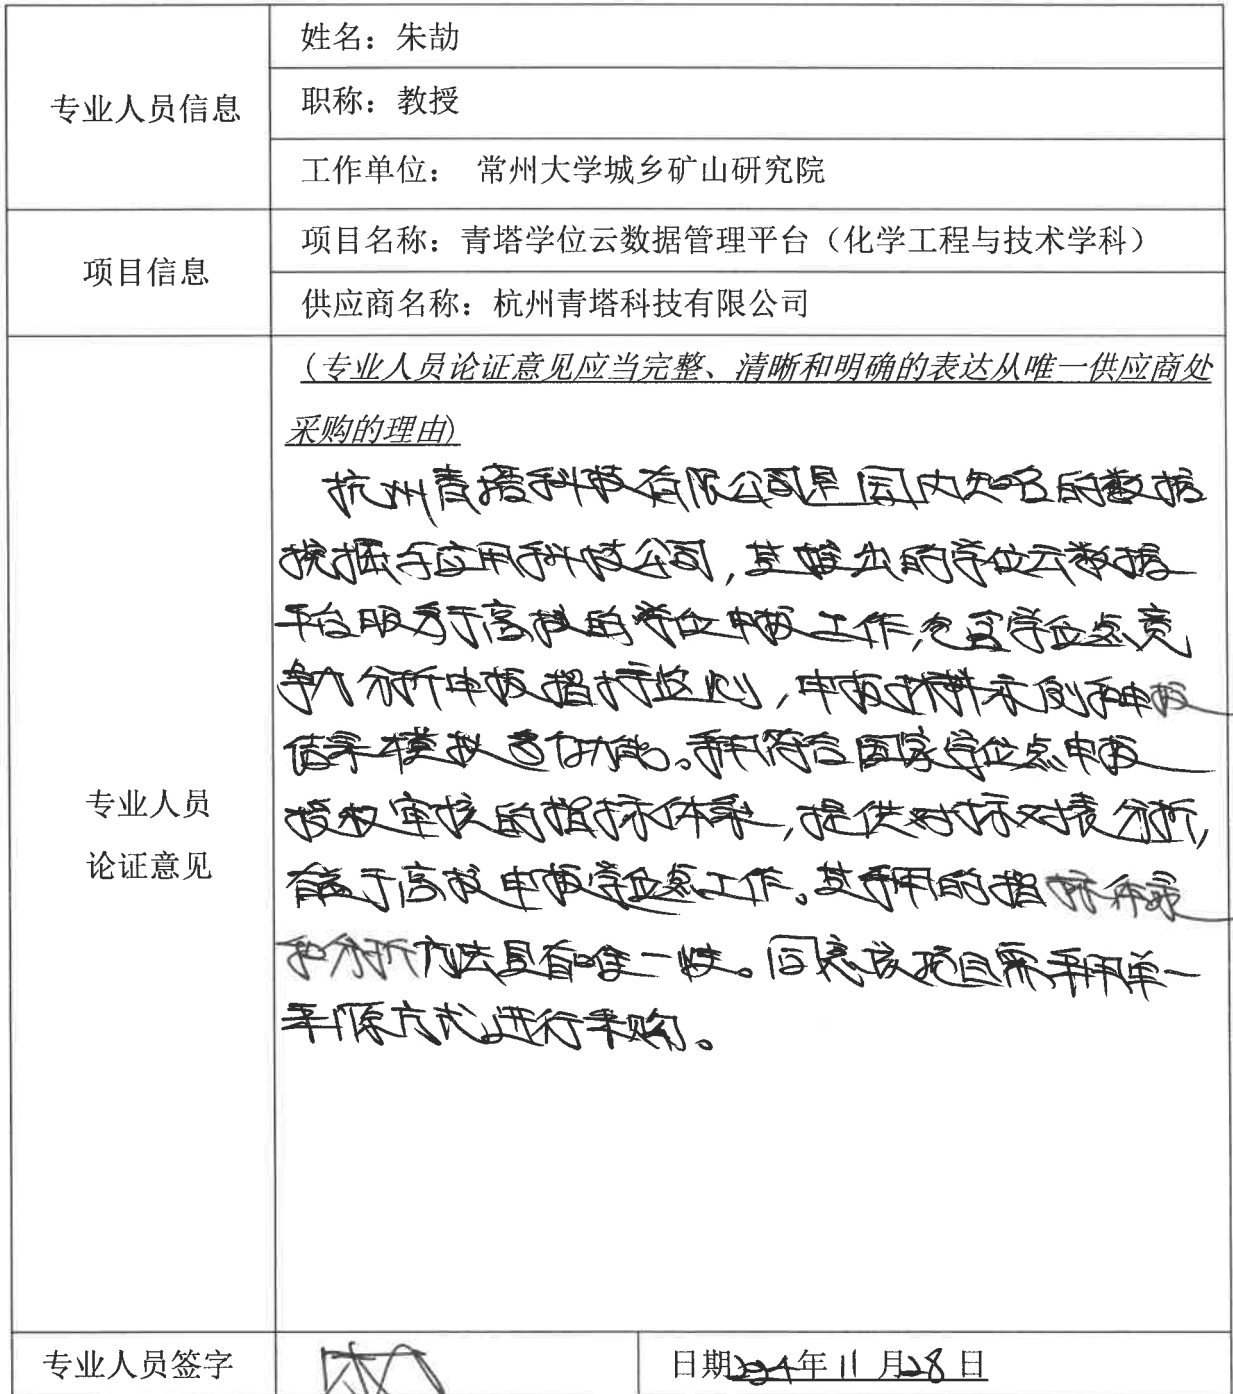 专业人员信息
姓名：朱劼
职称：教授
工作单位： 常州大学城乡矿山研究院
项目信息
项目名称：青塔学位云数据管理平台（化学工程与技术学科）
供应商名称：杭州青塔科技有限公司
专业人员
论证意见
(专业人员论证意见应当完整、清晰和明确的表达从唯一供应商处
采购的理由)
杭州青塔科技有限公司是国内知名的数据
挖掘与应用科技公司，其推出的学位云数据
平台服务于高校的学位申报工作，包含学位点竞
争力分析申报指标监测，申报材料示例和申报
结果模拟等功能。采用符合国家学位点申报
授权审核的指标体系，提供对标对表分析，
有益于高校申报学位点工作。其采用的指标体系
和分析方法具有唯一性。同意该项目需采用单一
来源方式进行采购。
专业人员签字
日期2024年11月28日